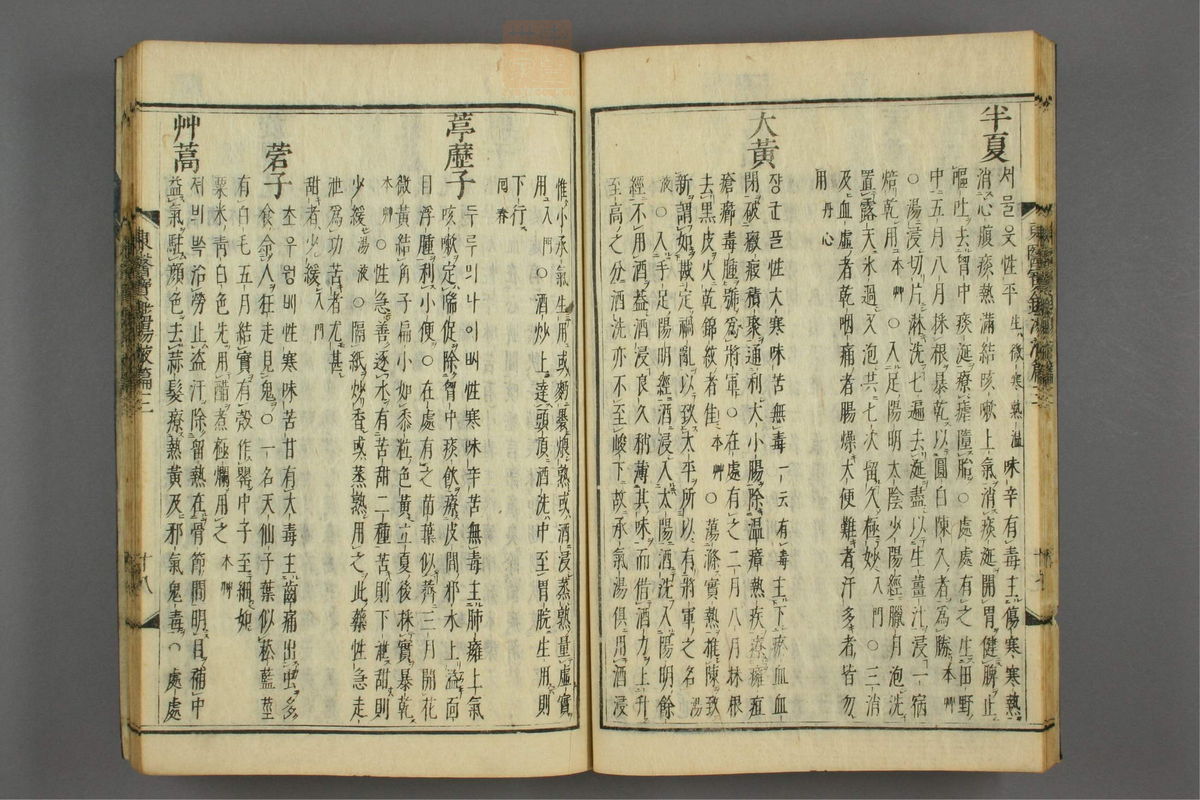 半夏
서믈읏性平生微寒熟温味辛有毒主傷寒寒熱
消心腹痰熱滿結咳嗽上氣消痰涎開胃健脾止
嘔吐去胷中痰涎療瘧墮胎○處處有之生田野
中五月八月採根暴乾以圓白陳久者為勝本艸
○湯浸切片淋洗七遍去涎盡以生薑汁浸一宿
焙乾用本艸○入足陽明太陰少陽經臘月泡洗
置露天氷過又泡共七次留久極妙入門○三消
及血虛者乾咽痛者腸燥大便難者汗多者皆勿
用丹心
大黃
쟝군플性大寒味苦無毒一云有毒主下瘀血血
閉破癥瘕積聚通利大小腸除温瘴熱疾療癰疽
瘡癤毒腫號為將軍○在處有之二月八月採根
去黑皮火乾錦紋者佳本艸○蕩滌實熱推陳致
新謂如戡定禍亂以致太平所以有將軍之名湯
液○入手足陽明經酒浸入太陽酒洗入陽明餘
經不用酒盖酒浸良久稍薄其味而借酒力上升
至高之分酒洗亦不至峻下故承氣湯俱用酒浸
惟小承氣生用或麪裹煨熟或酒浸蒸熟量虛實
用入門○酒炒上達頭頂酒洗中至胃脘生用則
下行回春
葶藶子
두루믜나이삐性寒味辛苦無毒主肺癰上氣
咳嗽定喘促除胷中痰飲療皮間邪水上溢面
目浮腫利小便○在處有之苗葉似薺三月開花
微黃結角子扁小如黍粒色黃立夏後採實暴乾
本艸○性急善逐水有苦甜二種苦則下泄甜則
少緩湯液○隔紙炒香或蒸熟用之此藥性急走
泄為功苦者尤甚
甜者少緩入門
莨菪子
초우웡삐性寒味苦甘有大毒主齒痛出虫多
食令人狂走見鬼○一名天仙子葉似菘藍莖
有白毛五月結實有殼作罌中子至細如
粟米青白色先用醋煮極爛用之本艸
艸蒿
저비쑥治勞止盗汗除留熱在骨節間明目補中
益氣駐顔色去蒜髮療熱黃及邪氣鬼毒○處處
東醫寶鑑湯液篇三
廿八